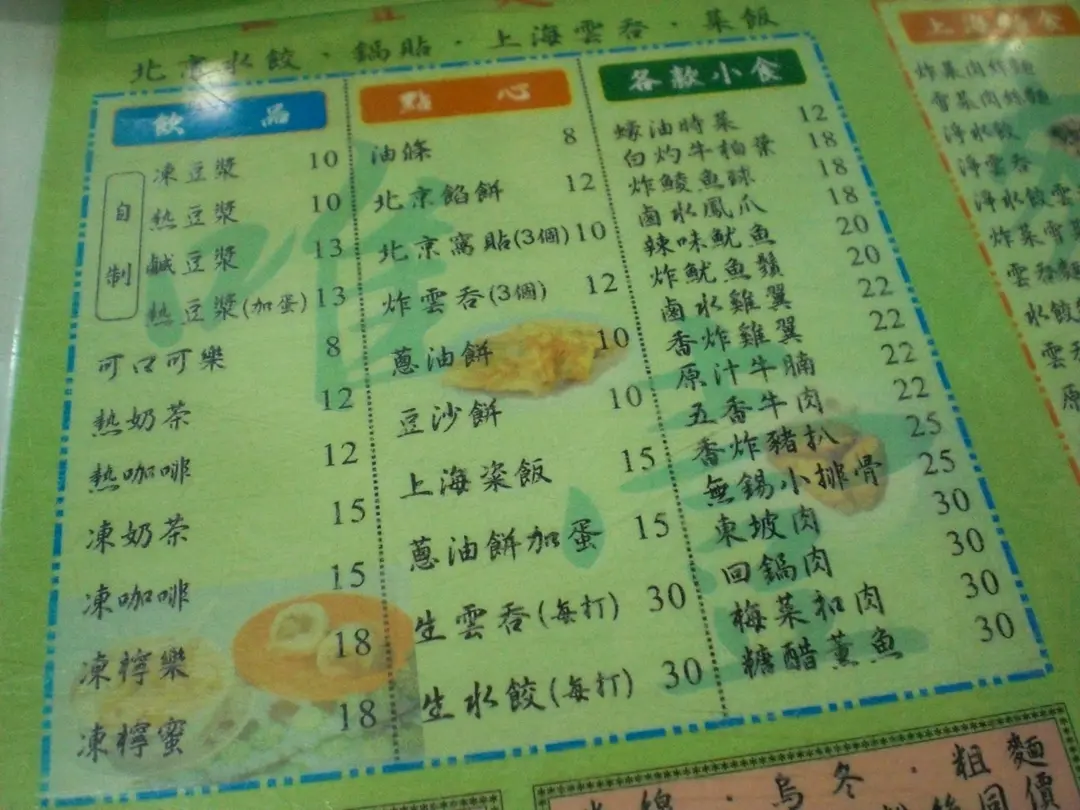 北京水餃·鍋貼·上海雲吞·菜飯
飲品
自制
凍豆漿 10
熱豆漿 10
鹹豆漿 13
熱豆漿(加蛋) 13
可口可樂 8
熱奶茶 12
熱咖啡 12
凍奶茶 15
凍咖啡 15
凍檸樂 18
凍檸蜜 18
點心
油條 8
北京餡餅 12
北京窩貼(3個) 10
炸雲吞(3個) 12
蔥油餅 10
豆沙餅 10
上海粢飯 15
蔥油餅加蛋 15
生雲吞(每打) 30
生水餃(每打) 30
各款小食
蠔油時菜 12
白灼牛柏葉 18
炸鯪魚球 18
鹵水鳳爪 18
辣味魷魚 20
炸魷魚鬚 20
鹵水雞翼 22
香炸雞翼 22
原汁牛腩 22
五香牛肉 22
香炸豬扒 25
無錫小排骨 25
東坡肉 30
回鍋肉 30
梅菜扣肉 30
糖醋薰魚 30
上海
食
炸菜肉絲麵
雪菜肉絲麵
淨水餃
淨雲吞
淨水餃雲
炸菜雪
雲吞
水餃
雲
原
烏冬·粗麵
同價